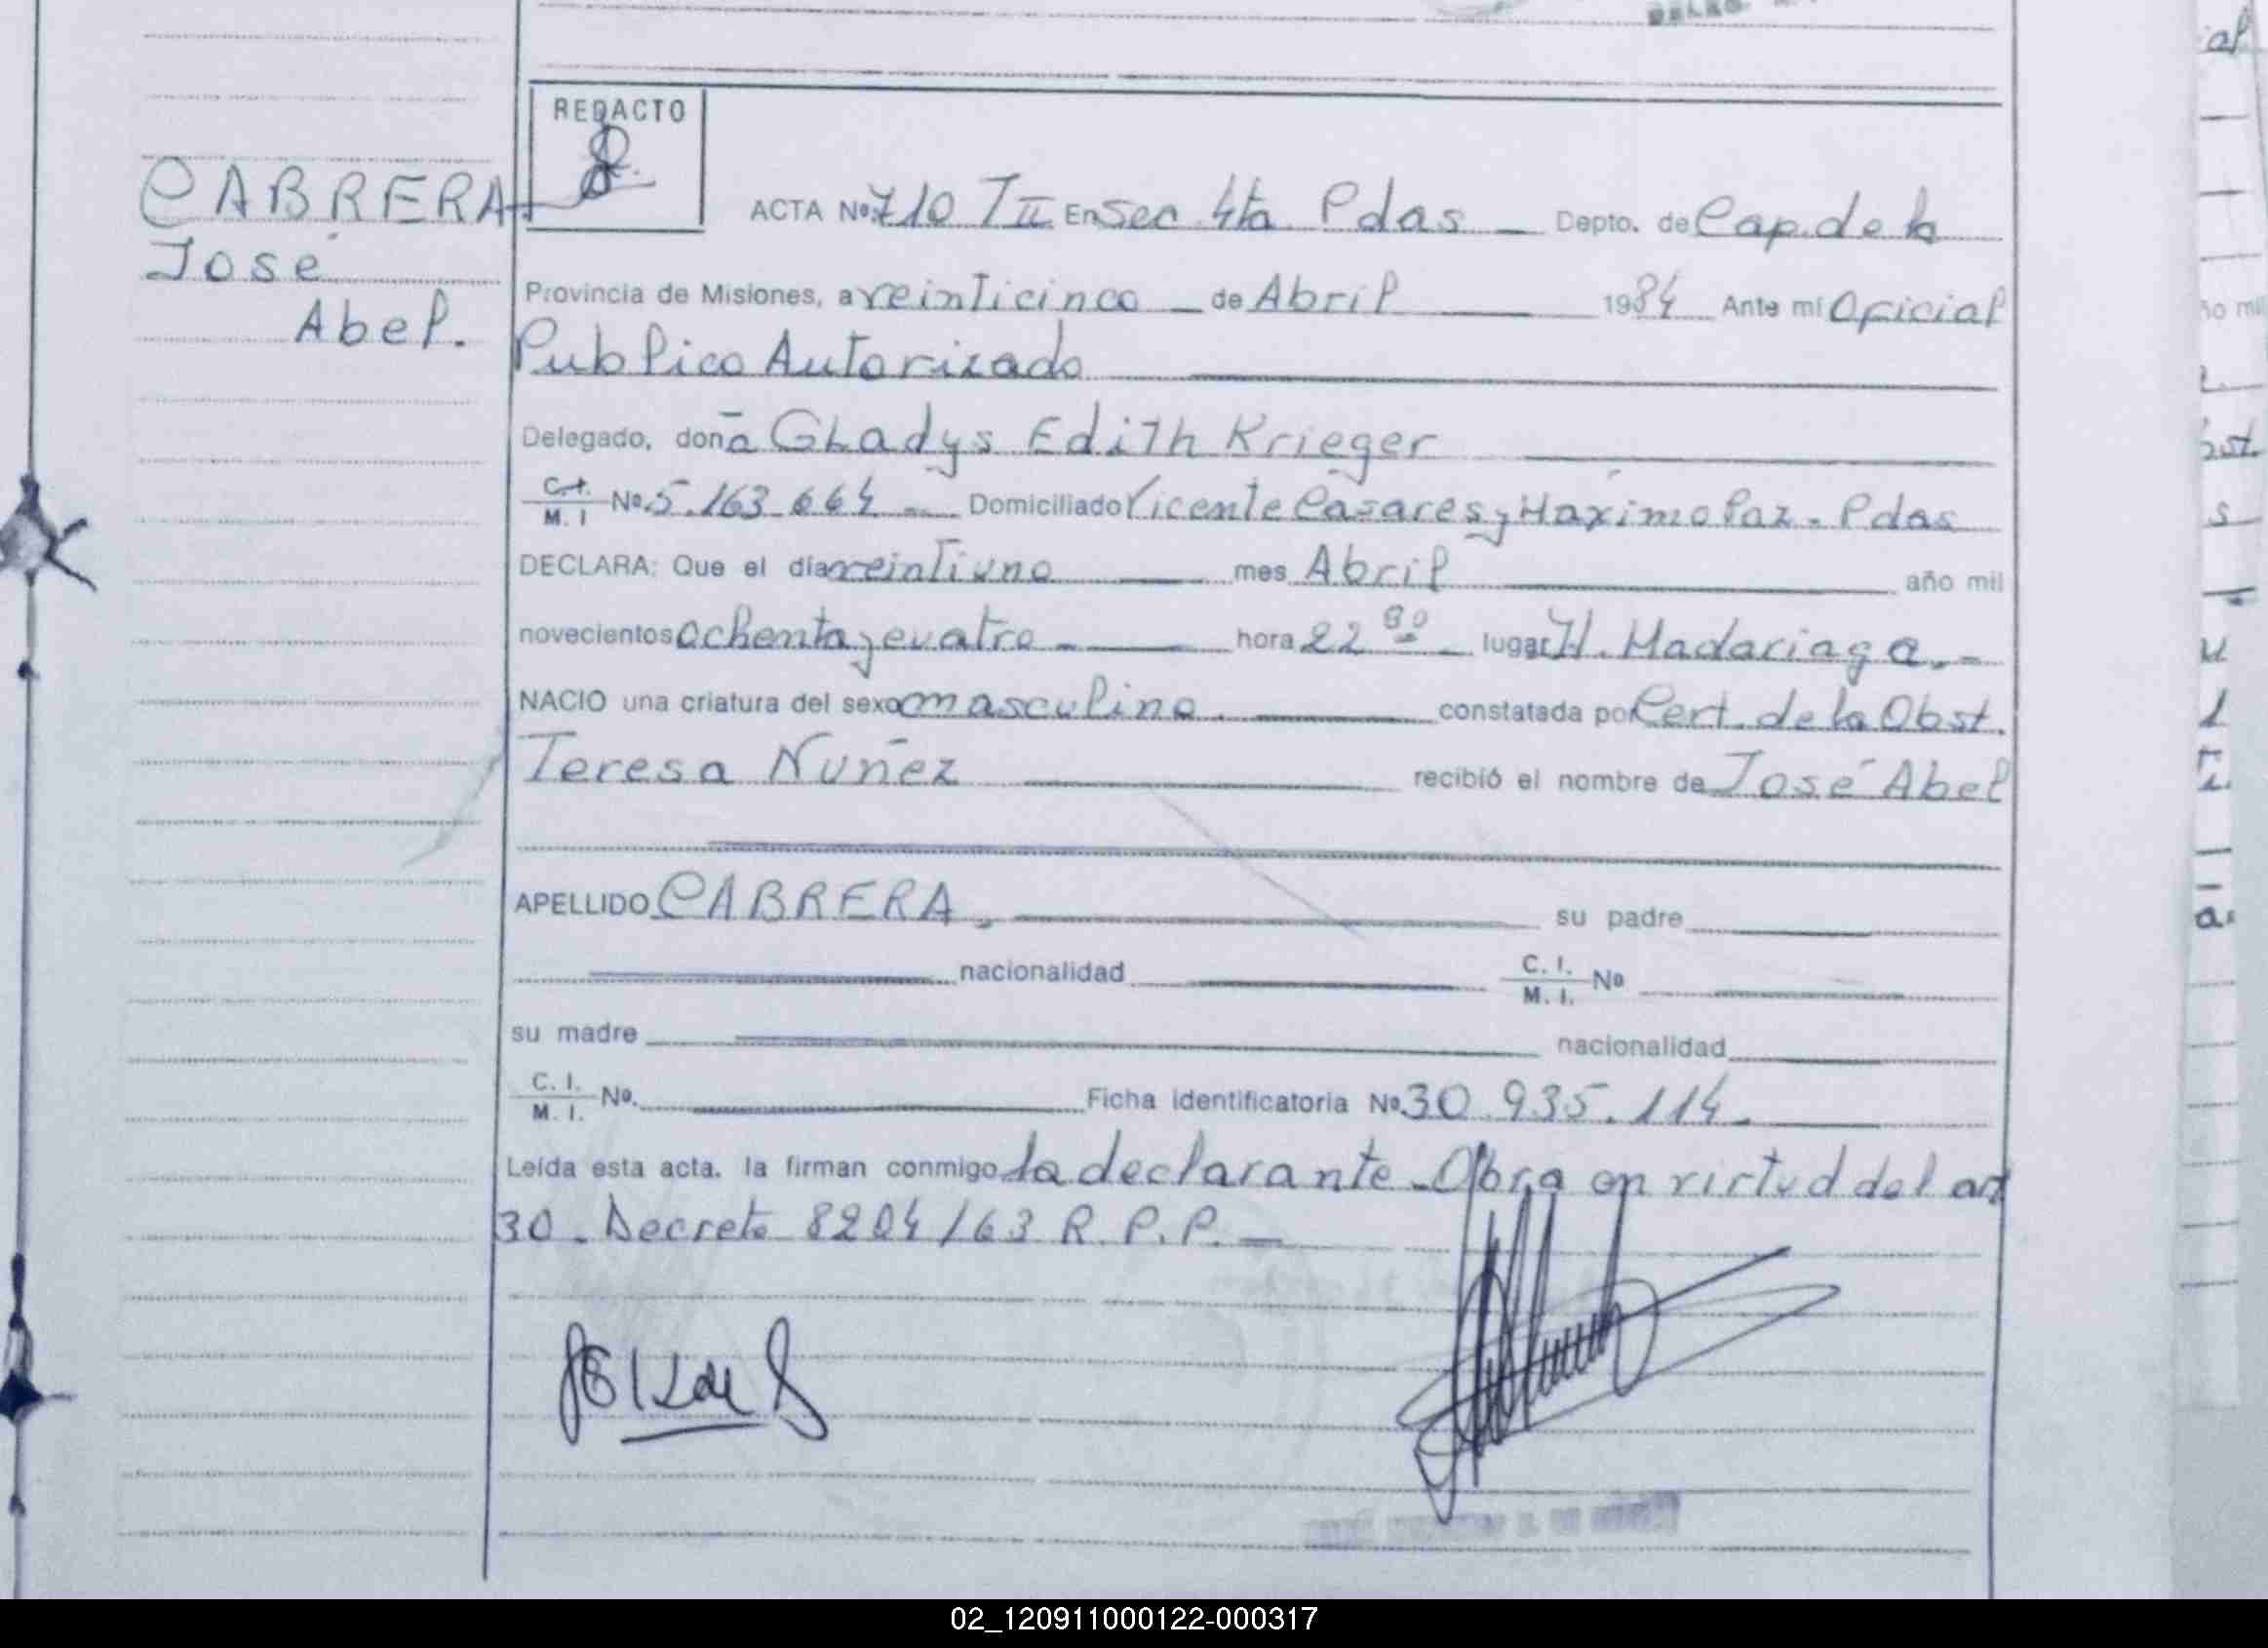 REDACTO
CABRERA
José
Abel.
ACTA Nº 710 TII En Sec 4ta Pdas — Depto. de Cap. de la
Provincia de Misiones, a veinticinco — de Abril — 1984 Ante mí Oficial
Publico Autorizado
Delegado, doña Gladys Edith Krieger
C.I. M. I Nº 5.163.664 — Domiciliado Vicente Casares y Maximo Paz. Pdas
DECLARA: Que el día veintiuno — mes Abril — año mil
novecientos ochenta y cuatro — hora 22 30 — lugar H. Madariaga. -
NACIO una criatura del sexo masculino. — constatada por Cert. de la Obst.
Teresa Nuñez — recibió el nombre de José Abel
APELLIDO CABRERA. — su padre
nacionalidad C. I. M. I. Nº
su madre nacionalidad
C. I. M. I. Nº. Ficha identificatoria Nº 30.935.114. —
Leída esta acta, la firman conmigo la declarante. Obra en virtud del art
30. Decreto 8204/63 R.P.P. —
02_120911000122-000317